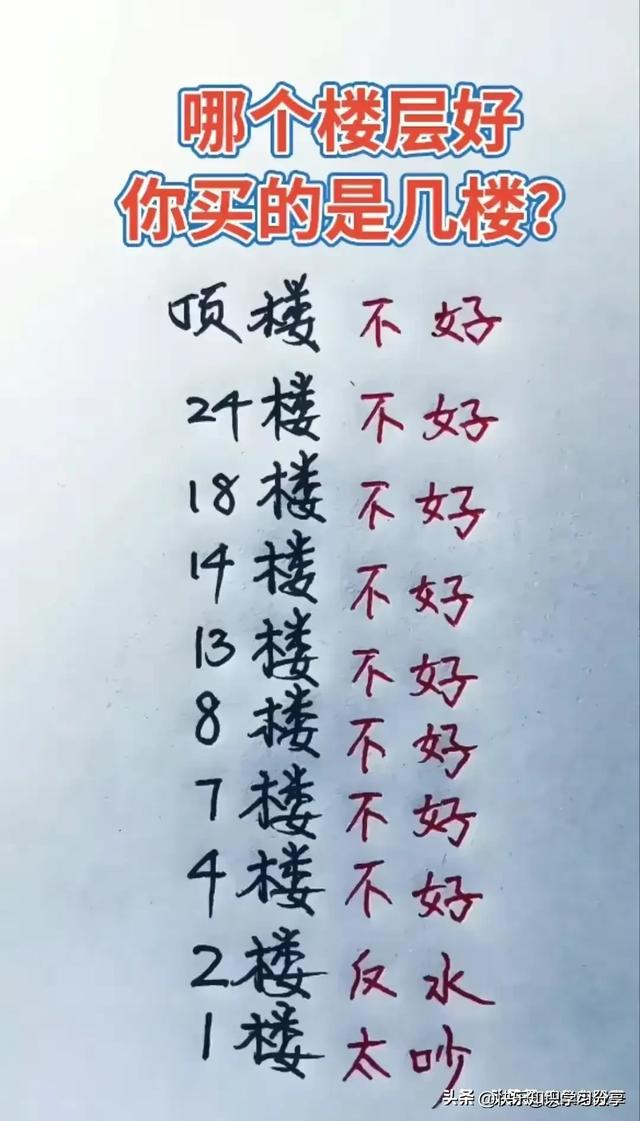 哪个楼层好
你买的是几楼?
顶楼 不好
24楼 不好
18楼 不好
14楼 不好
13楼 不好
8楼 不好
7楼 不好
4楼 不好
2楼 反水
1楼 太吵
头条 @快乐知识学习分享